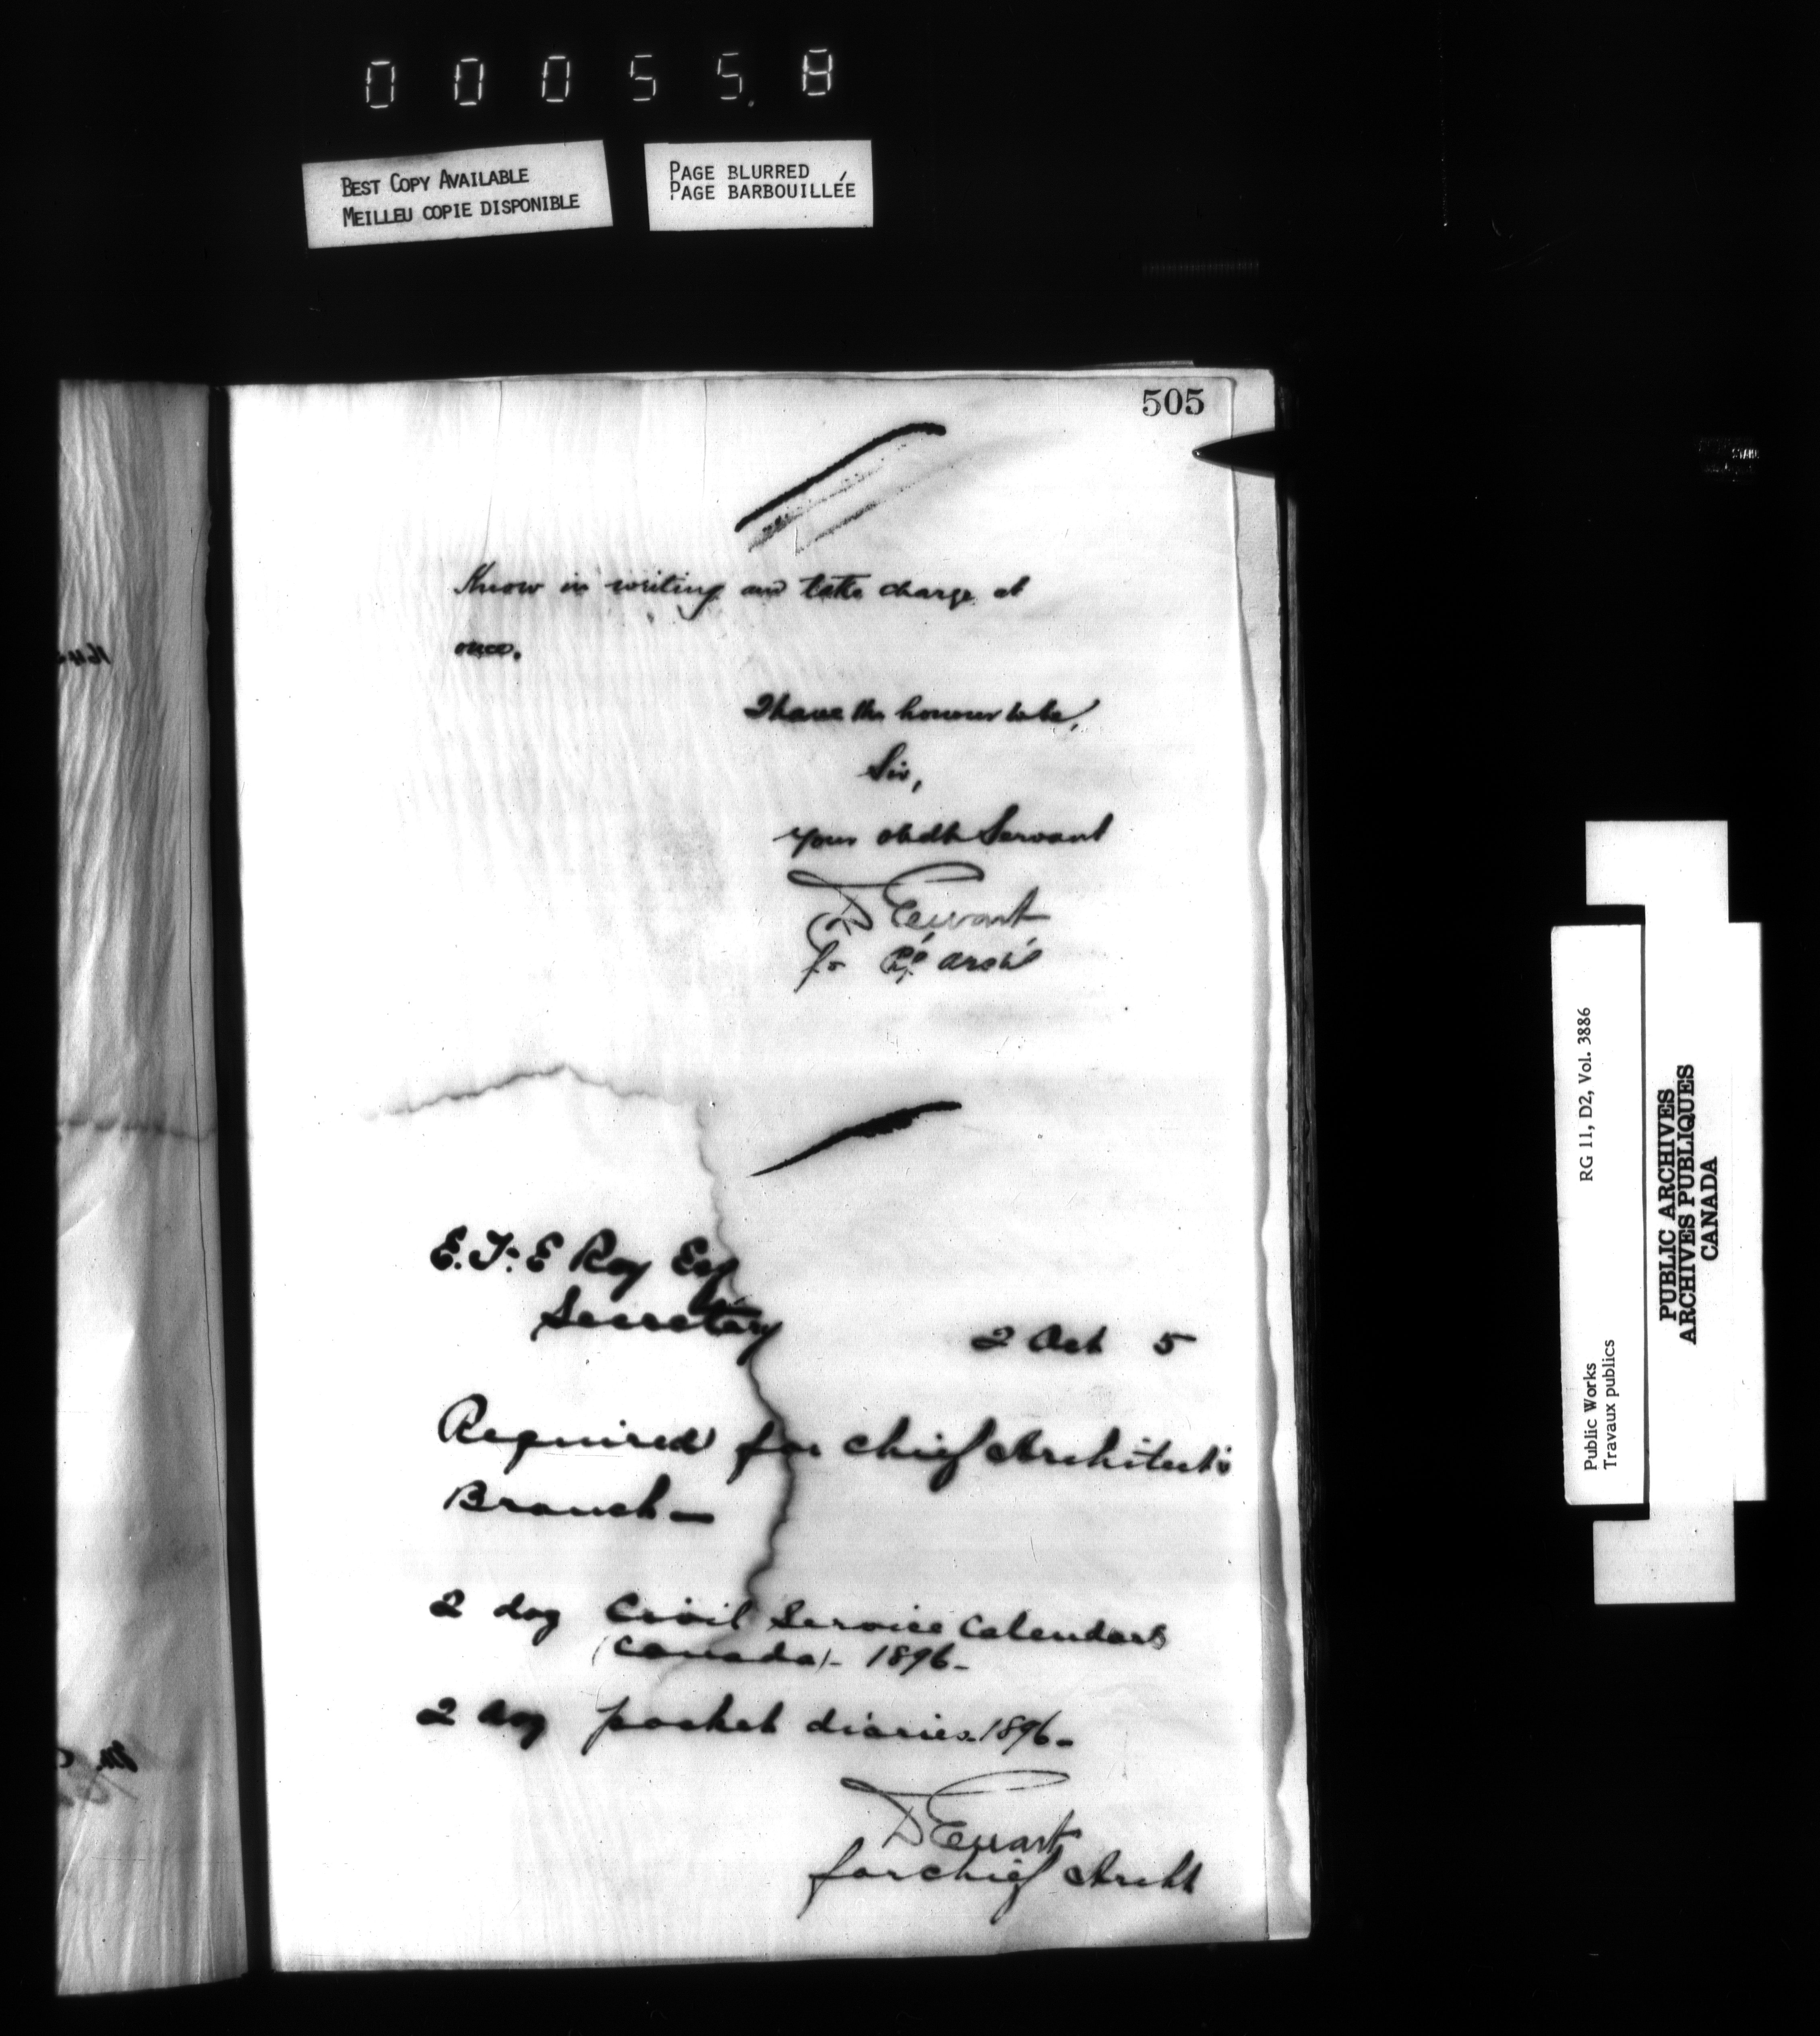 000558
BEST COPY AVAILABLE
MEILLEU COPIE DISPONIBLE
PAGE BLURRED
PAGE BARBOUILLÉE
505
Know in writing and take charge at
once.
I have the honour to be,
Sir,
your obdt Servant
D Ewart
for Ch Archt
E. F. E Roy Esq
Secretary
2 Oct 5
Required for chief Architect's
Branch —
2 doz Civil Service Calendars
(Canada) - 1896 -
2 doz pocket diaries - 1896 -
D Ewart
for chief Archt
Public Works
Travaux publics
RG 11, D2, Vol. 3886
PUBLIC ARCHIVES
ARCHIVES PUBLIQUES
CANADA